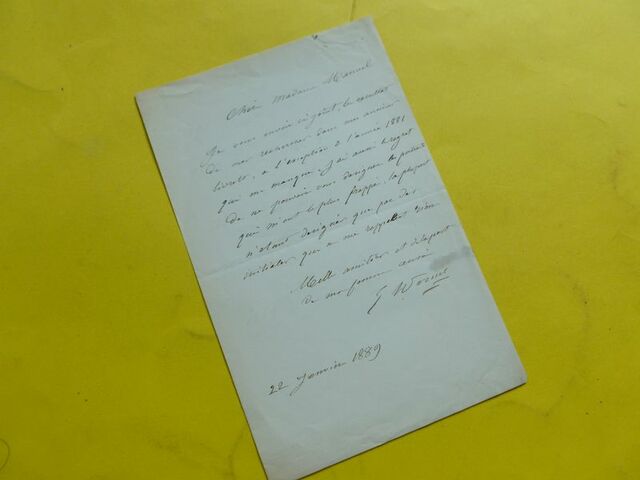 Chère Madame Manuel
Je vous envoie ci joint, le résultat
de mes recherches dans mes anciens
livrets, à l'exception de l'année 1881
qui me manque. J'ai aussi le regret
de ne pouvoir vous désigner les portraits
qui m'ont le plus frappé, la plupart
n'étant désignés que par des
initiales qui ne me rappellent rien.
Mille amitiés et de la part
de ma femme aussi
G Worms
22 Janvier 1889